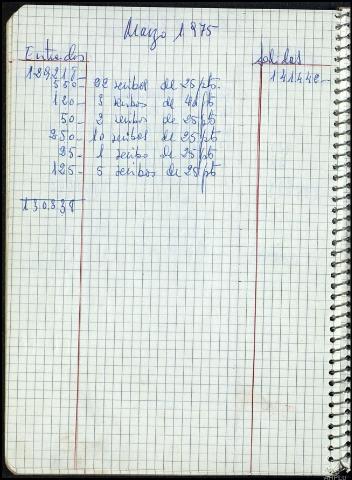 Marzo 1975
Entradas Salidas
129218- 141442-
550- 22 recibos de 25 pts.
120- 3 recibos de 40 pts
50- 2 recibos de 25 pts
250- 10 recibos de 25 pts
25- 1 recibo de 25 pts
125- 5 recibos de 25 pts
130338